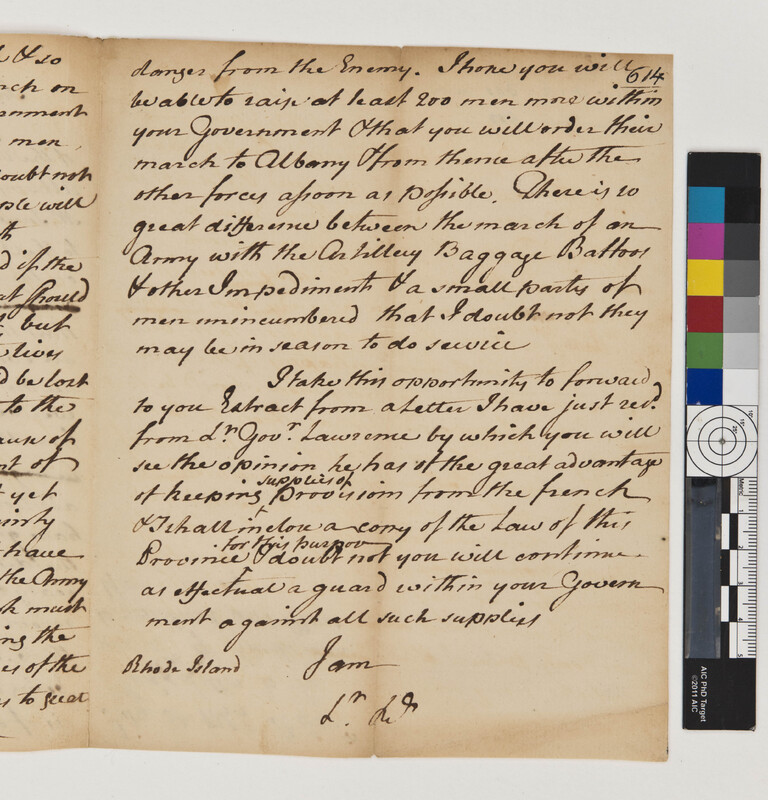 & so
rch on
ernment
men
doubt not
ople will
d if the
at should
but
lives
d be lost
to the
ause of
nt of
yet
ainty
have
the Army
must
ing the
es of the
s to great
614
danger from the Enemy. I hope you will
be able to raise at least 200 men more within
your Government & that you will order their
march to Albany & from thence after the
other forces assoon as possible. There is so
great difference between the march of an
Army with the Artillery Baggage Battoos
& other Impediments & a small party of
men unincumbered that I doubt not they
may be in season to do service
I take this opportunity to forward
to you Extract from a Letter I have just recd.
from Lt. Govr. Lawrence by which you will
see the opinion he has of the great advantage
of keeping supplies of provisions from the french
& I shall inclose a copy of the Law of this
Province for this purpose I doubt not you will continue
as effectual a guard within your Govern
ment against all such supplies
Rhode Island I am